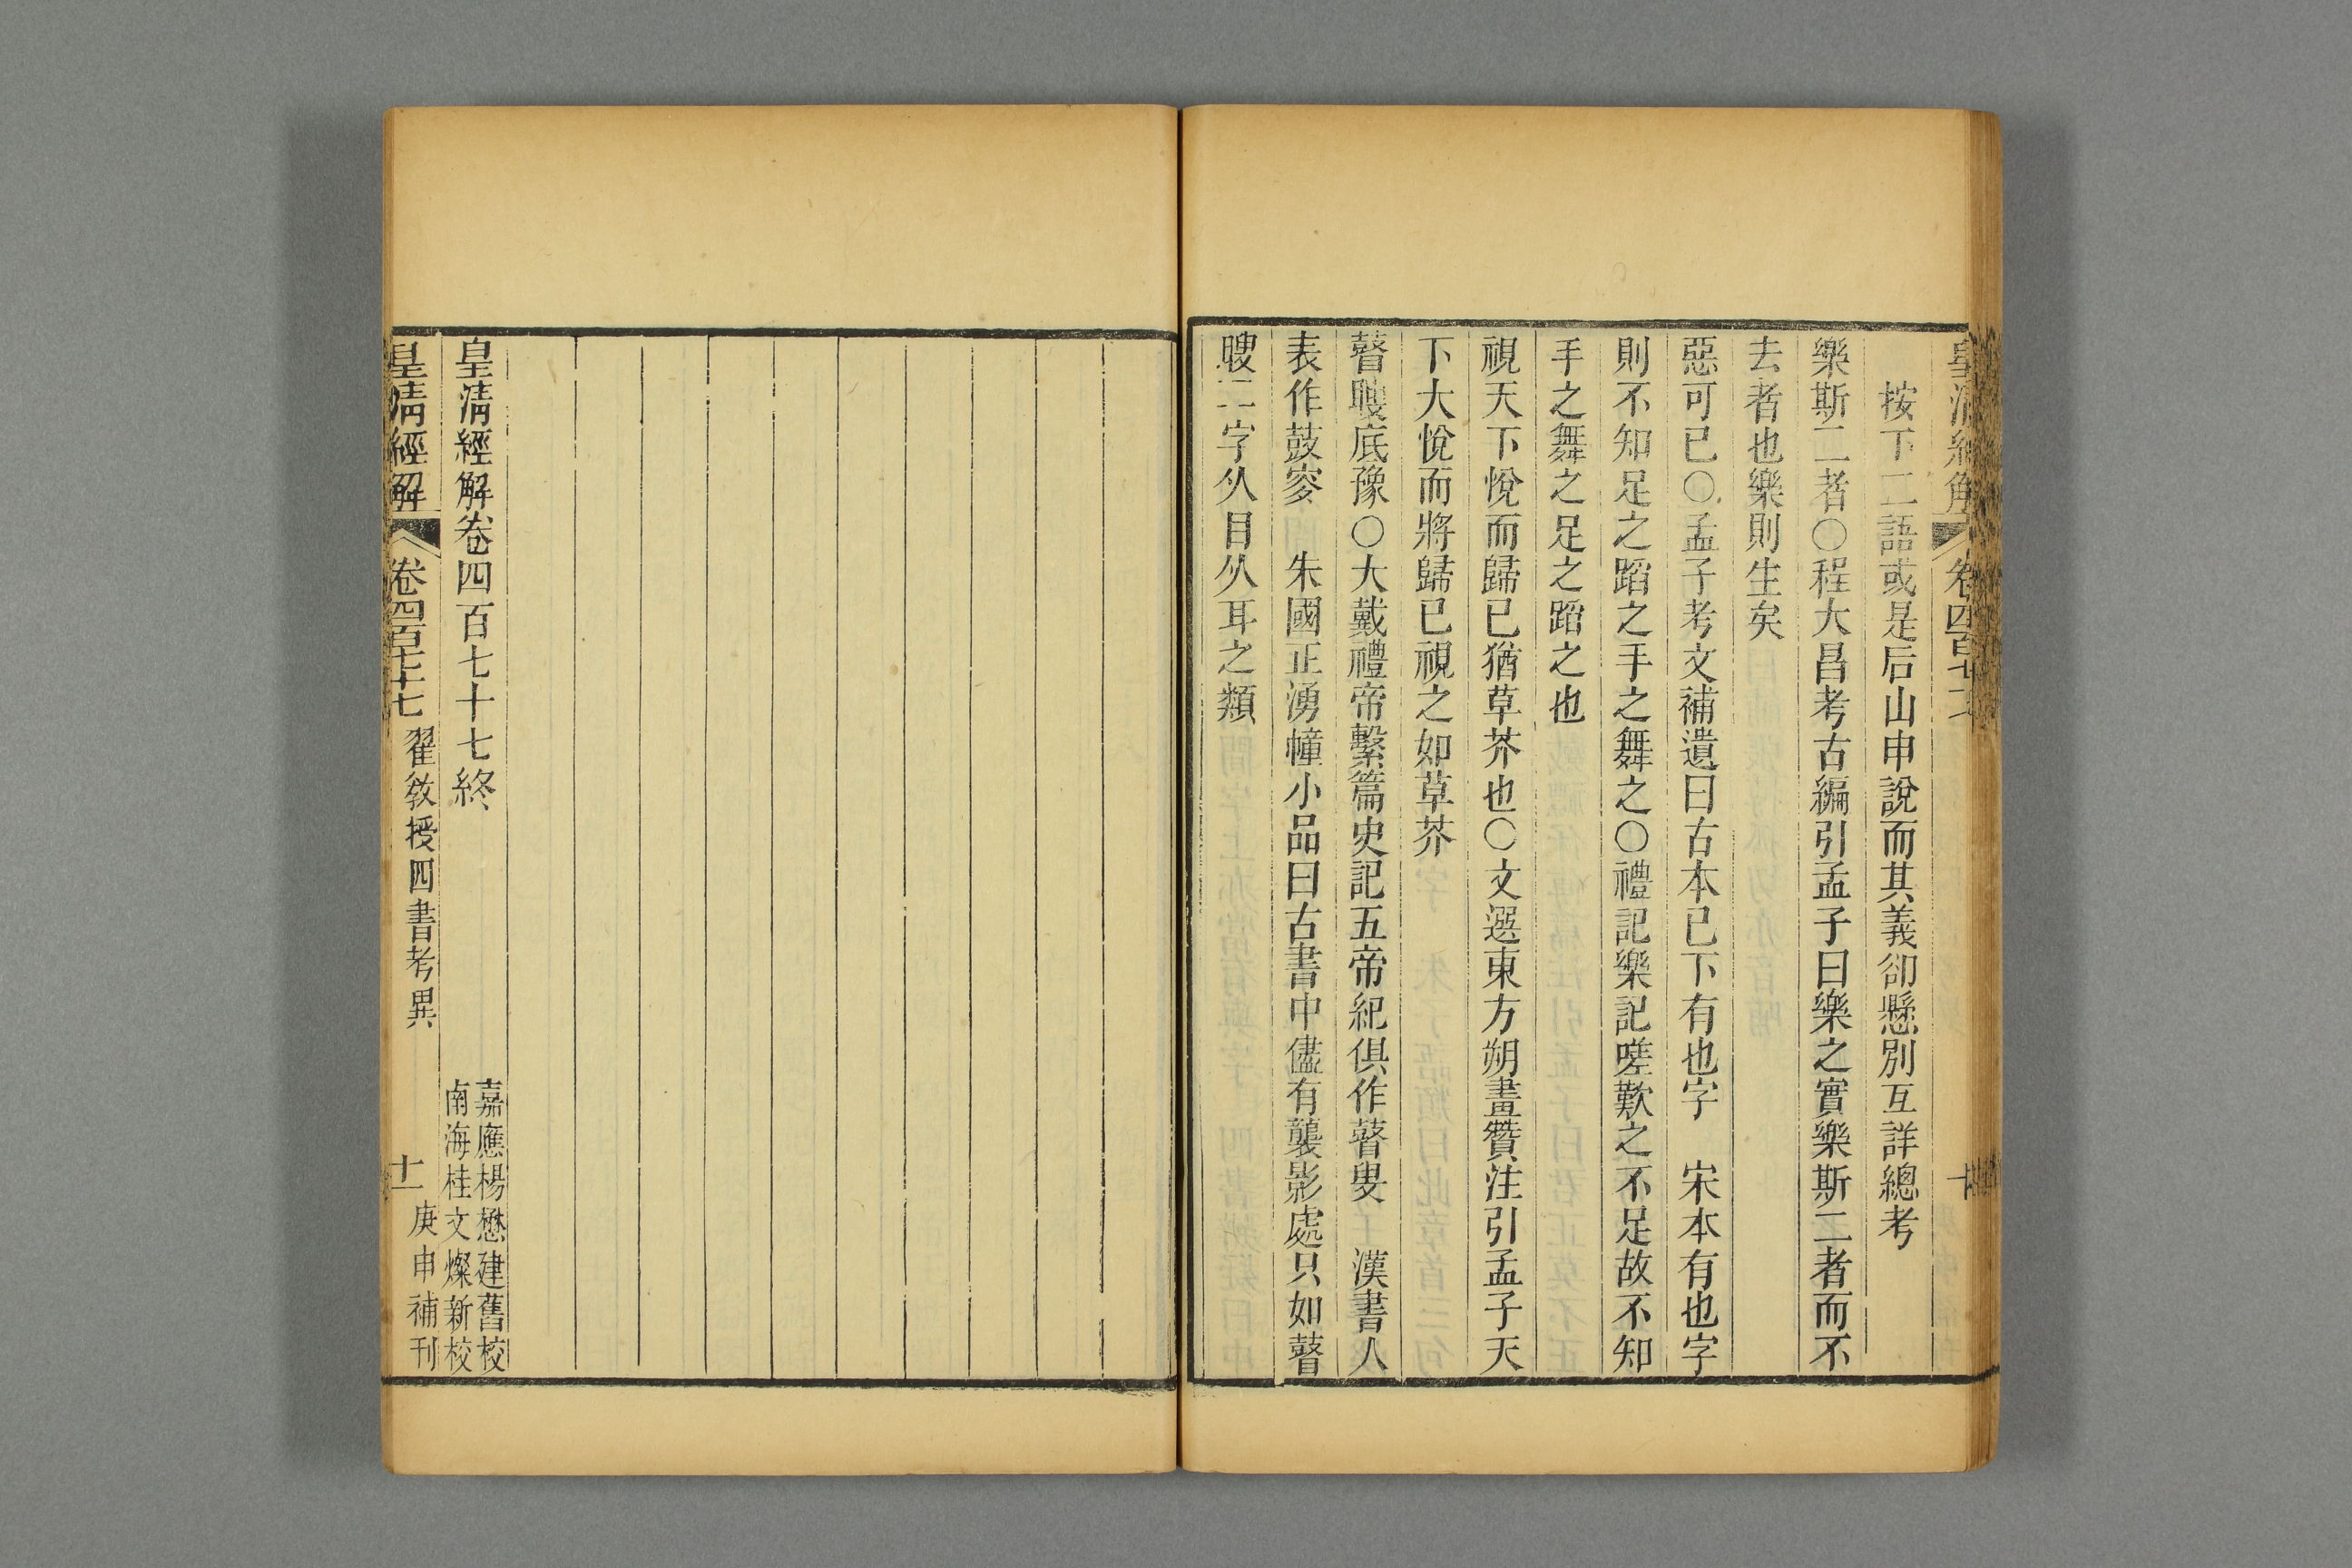 按下二語或是后山申說而其義卻懸別互詳總考
樂斯二者○程大昌考古編引孟子曰樂之實樂斯二者而不
去者也樂則生矣
惡可已○孟子考文補遺曰古本已下有也字　宋本有也字
則不知足之蹈之手之舞之○禮記樂記嗟歎之不足故不知
手之舞之足之蹈之也
視天下悅而歸已猶草芥也○文選東方朔畫贊注引孟子天
下大悅而將歸已視之如草芥
瞽瞍底豫○大戴禮帝繫篇史記五帝紀俱作瞽叟　漢書人
表作鼓寥　朱國正湧幢小品曰古書中儘有襲影處只如瞽
瞍二字从目从耳之類
皇清經解卷四百七十七終
嘉應楊懋建舊校
南海桂文燦新校
皇清經解　卷四百七十七　翟教授四書考異　十一　庚申補刊